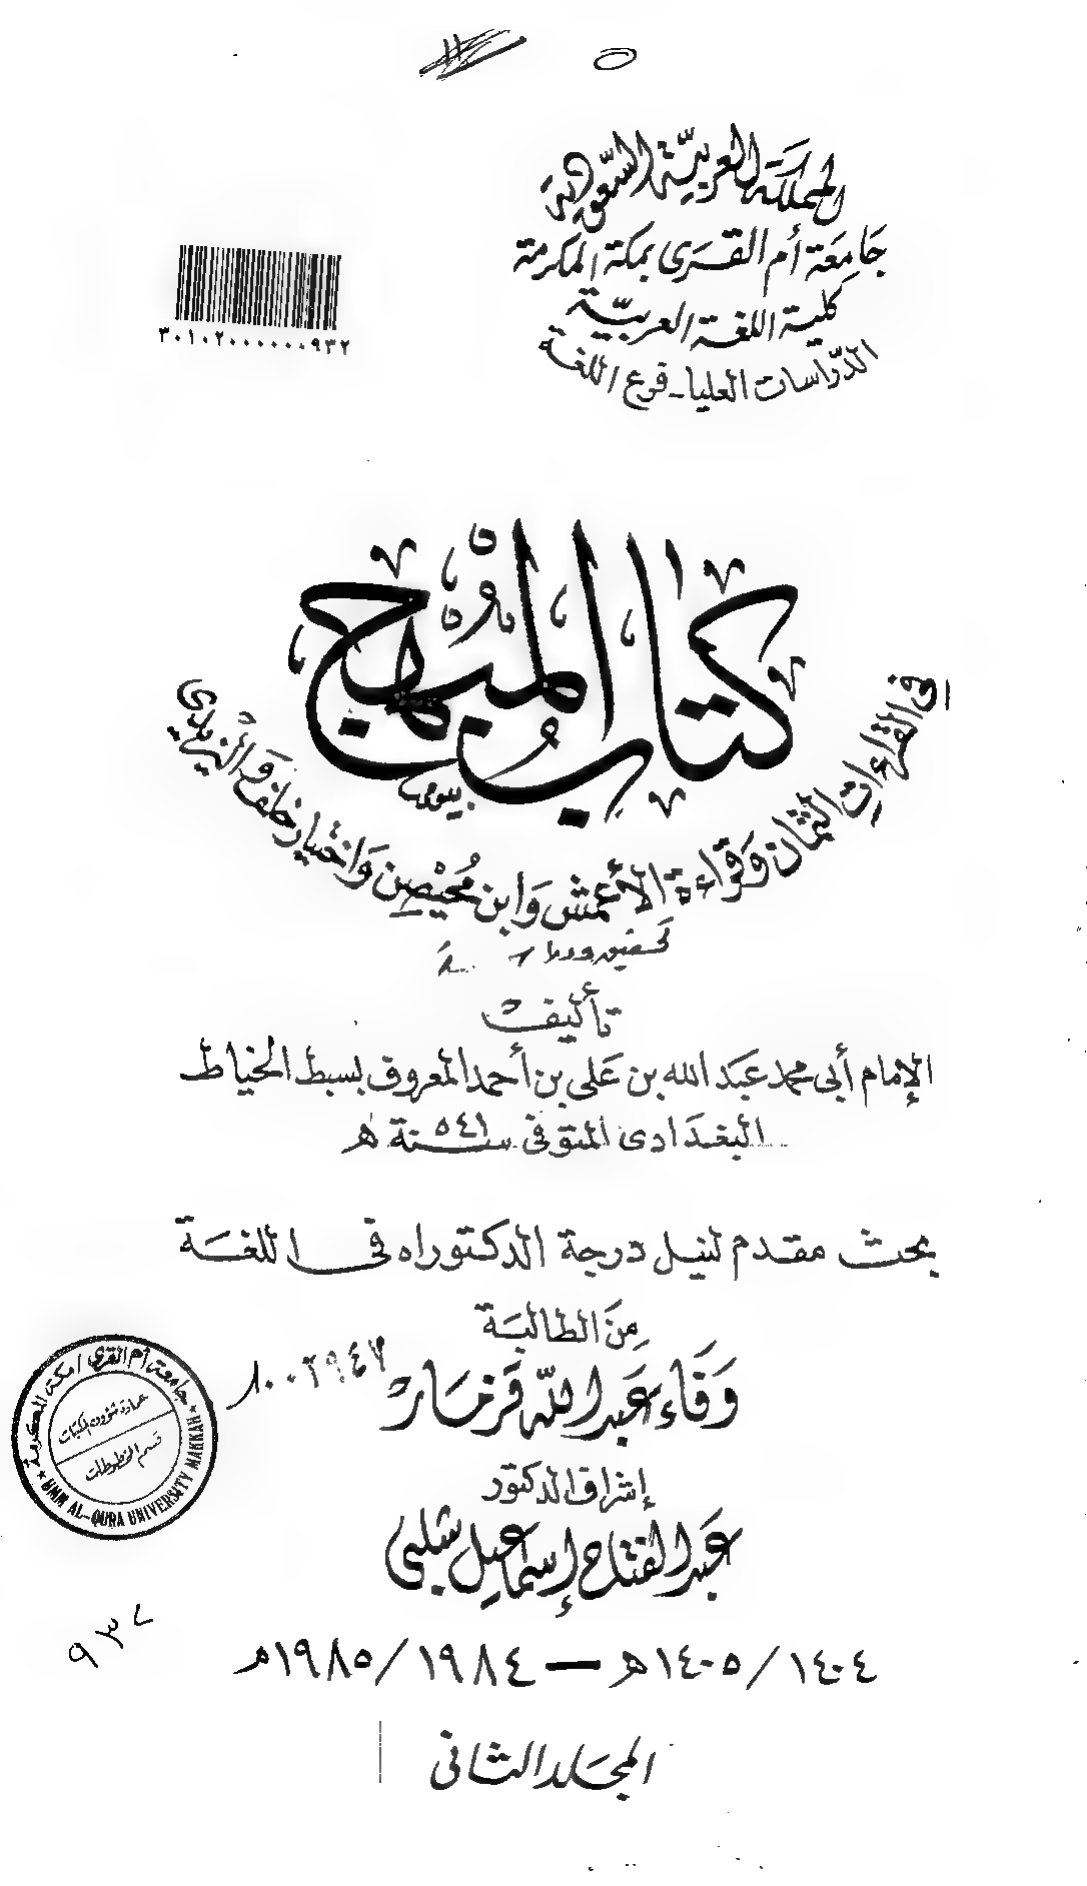 المملكة العربية السعودية
جامعة أم القرى بمكة المكرمة
كلية اللغة العربية
الدراسات العليا - فرع اللغة
٣٠١٠٢٠٠٠٠٠٠٩٣٢
كتاب المبهج
في القراءات الثمان وقراءة الأعمش وابن محيصن واختيار خلف واليزيدي
تأليف
الإمام أبي محمد عبد الله بن علي بن أحمد المعروف بسبط الخياط
البغدادي المتوفى سنة ٥٤١ هـ
بحث مقدم لنيل درجة الدكتوراه في اللغة
من الطالبة
وفاء عبد الله قزمار
إشراف الدكتور
عبد الفتاح إسماعيل شلبي
جامعة أم القرى / مكة المكرمة
عمادة شؤون المكتبات
قسم المخطوطات
UMM AL-QURA UNIVERSITY MAKKAH
١٤٠٤/١٤٠٥هـ — ١٩٨٤/١٩٨٥م
المجلد الثاني